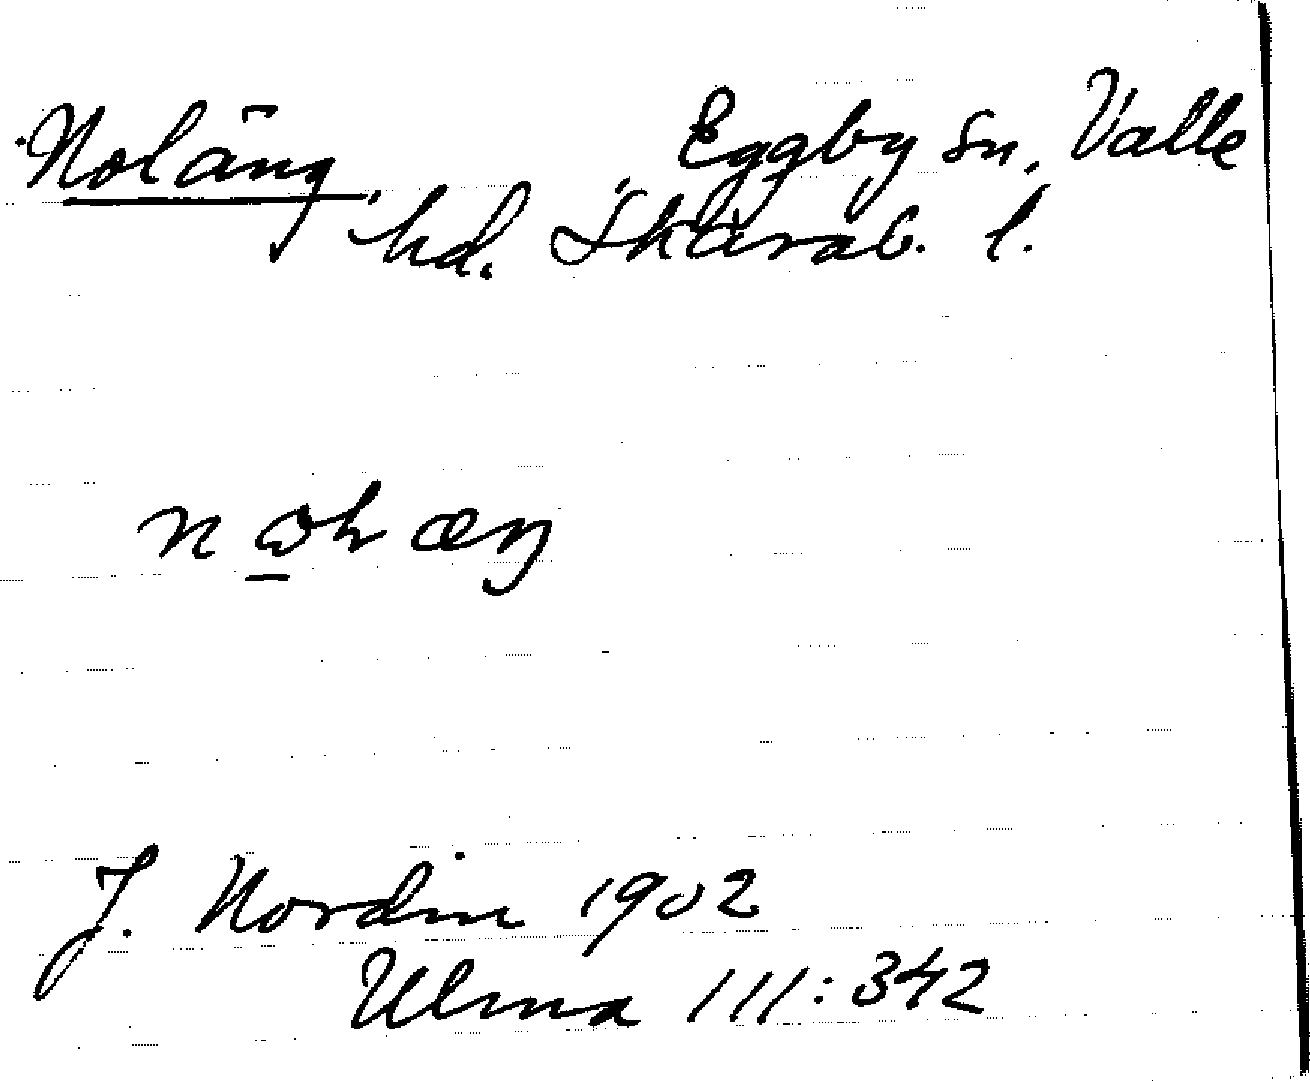 Noläng Eggby sn, Valle
hd. Skarab. l.
J. Nordin 1902
Ulma 111:342